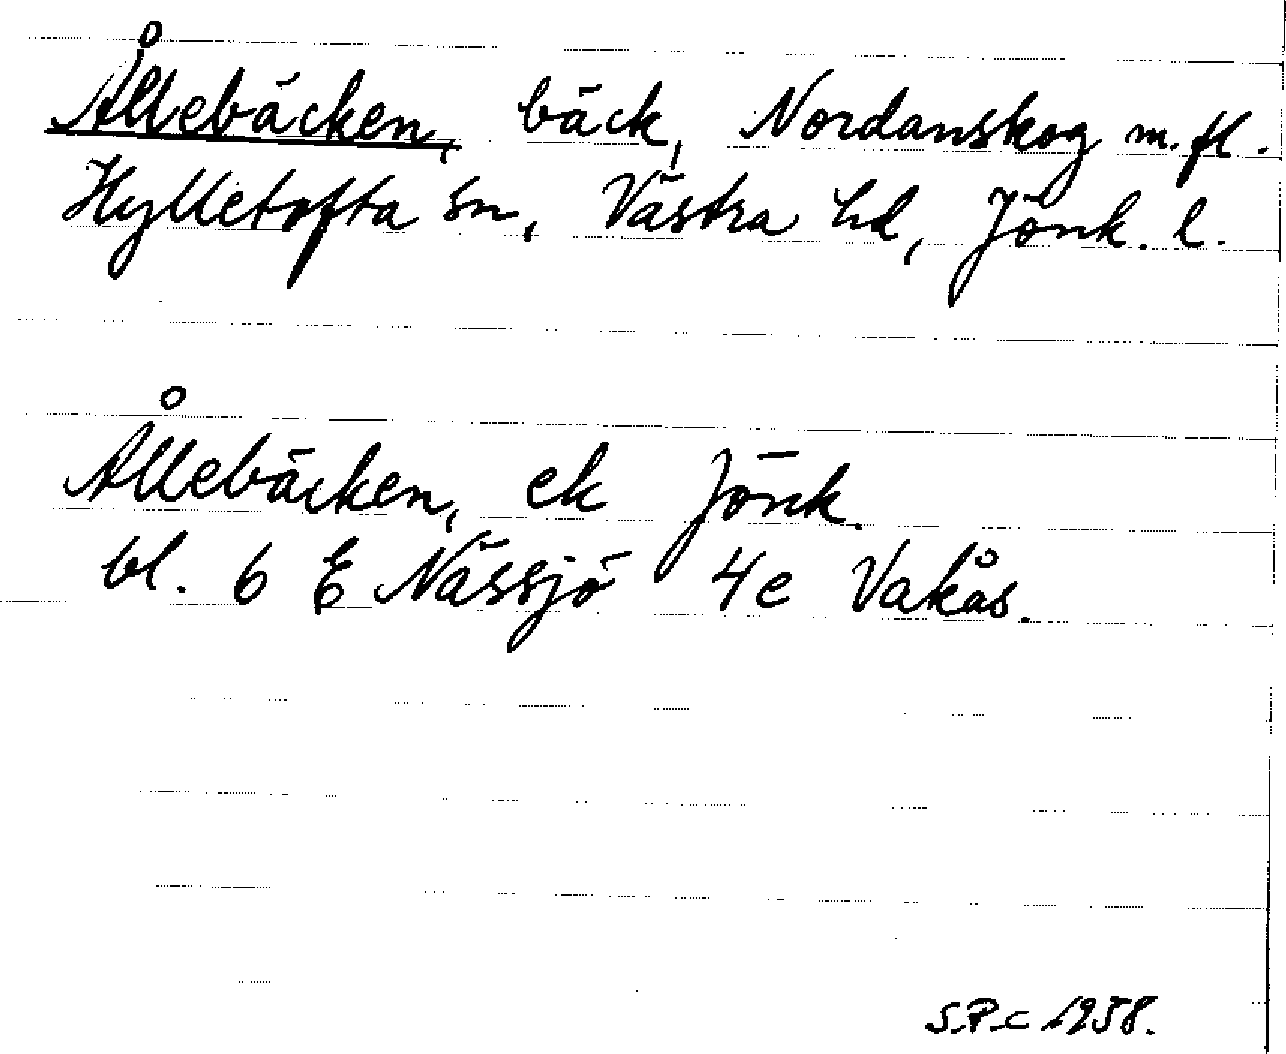 Ållebäcken, bäck, Nordanskog m.fl.
Hylletofta sn, Västra hd, Jönk. l.
Ållebäcken, ek Jönk.
bl. 6 E Nässjö 4e Vakås.
S.P-c 1958.